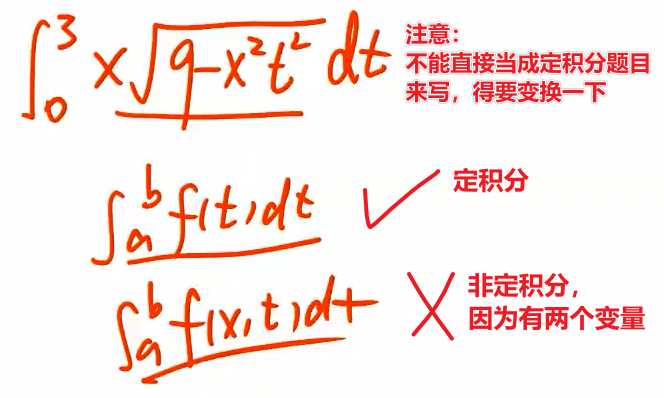 ∫₀³ x√(9-x²t²) dt
注意：
不能直接当成定积分题目
来写，得要变换一下
∫ₐᵇ f(t)dt
定积分
∫ₐᵇ f(x,t)dt
非定积分，
因为有两个变量